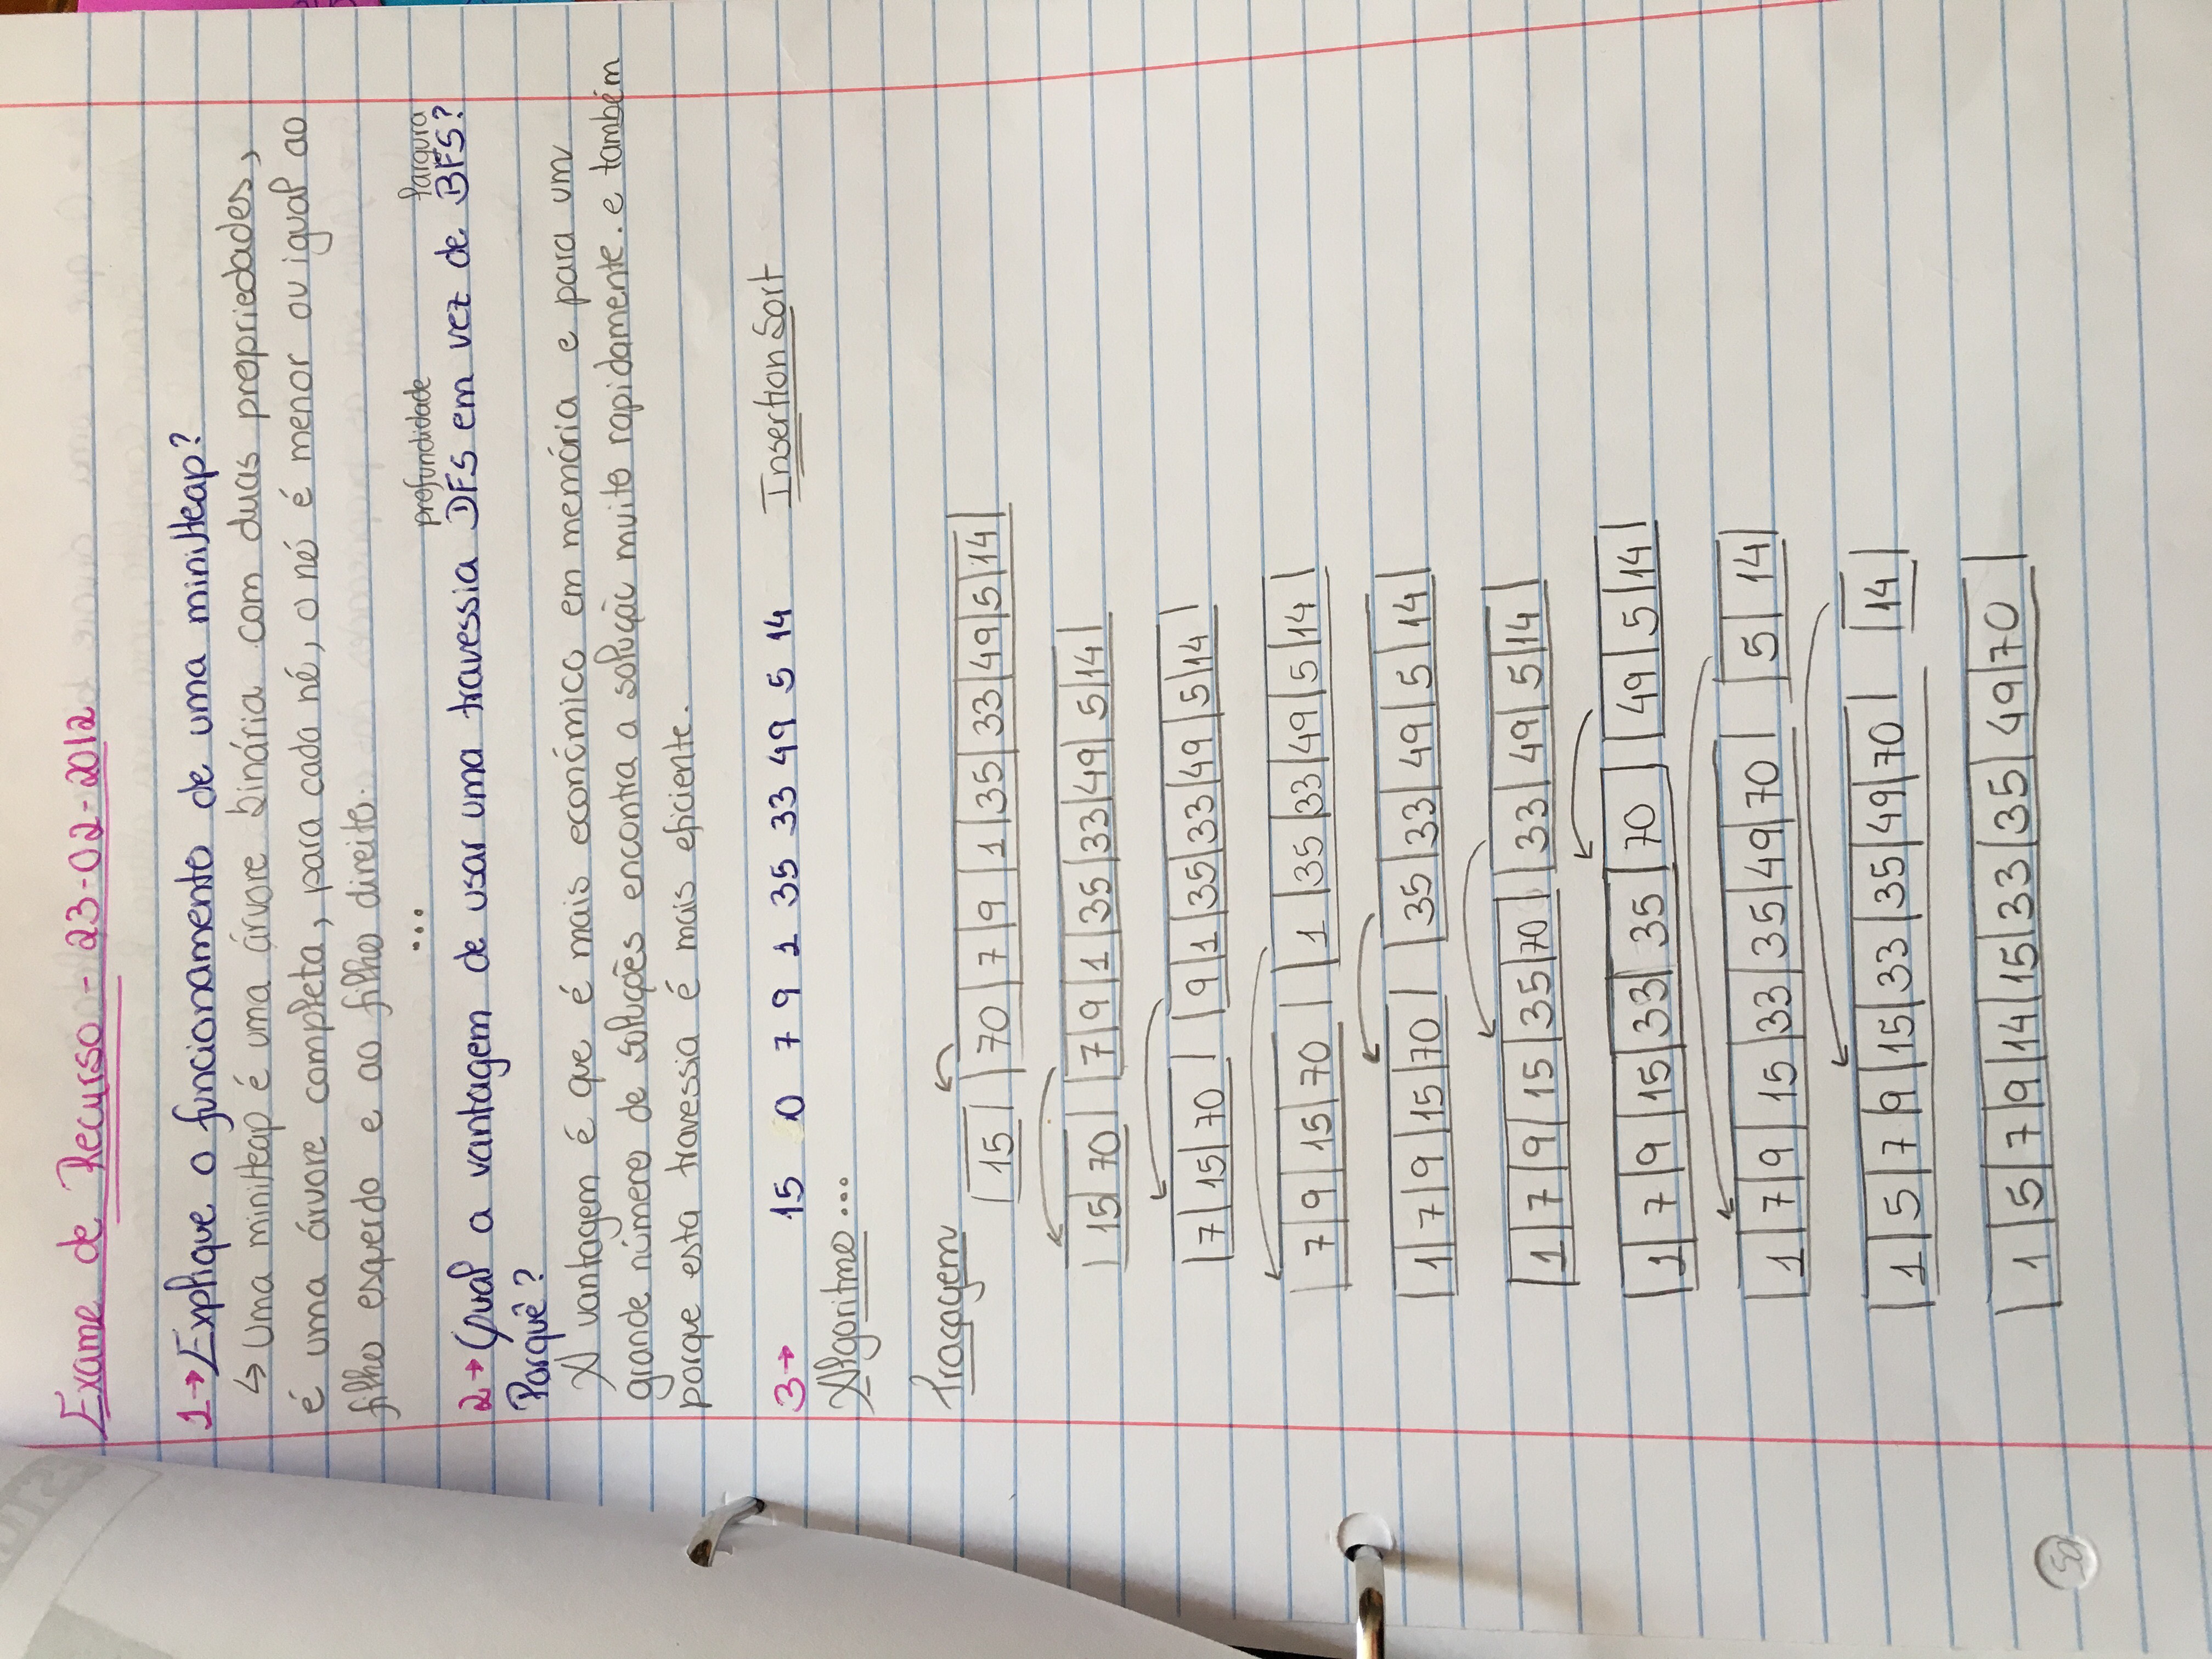 Exame de Recurso - 23-02-2012
1→ Explique o funcionamento de uma miniHeap?
↳ Uma miniHeap é uma árvore binária com duas propriedades,
é uma árvore completa, para cada nó, o nó é menor ou igual ao
filho esquerdo e ao filho direito.
...
profundidade largura
2→ Qual a vantagem de usar uma travessia DFS em vez de BFS?
Porquê?
A vantagem é que é mais económico em memória e para um
grande número de soluções encontra a solução muito rapidamente. e também
porque esta travessia é mais eficiente.
3→ 15 0 7 9 1 35 33 49 5 14 Insertion Sort
Algoritmo ...
Traçagem
15 70 7 9 1 35 33 49 5 14
15 70 7 9 1 35 33 49 5 14
7 15 70 9 1 35 33 49 5 14
7 9 15 70 1 35 33 49 5 14
1 7 9 15 70 35 33 49 5 14
1 7 9 15 35 70 33 49 5 14
1 7 9 15 33 35 70 49 5 14
1 7 9 15 33 35 49 70 5 14
1 5 7 9 15 33 35 49 70 14
1 5 7 9 14 15 33 35 49 70